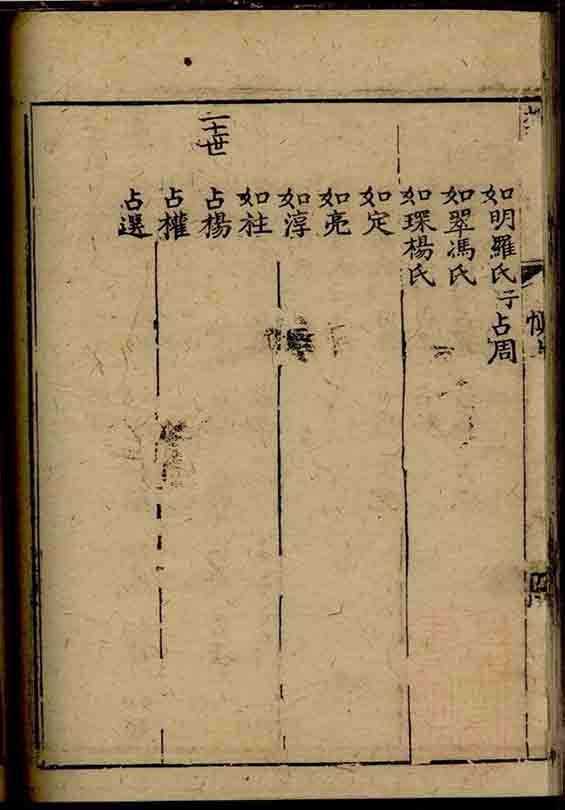 如明羅氏子占周
如翠馮氏
如琛楊氏
如定
如亮
如淳
如社
二十世
占楊
占權
占選